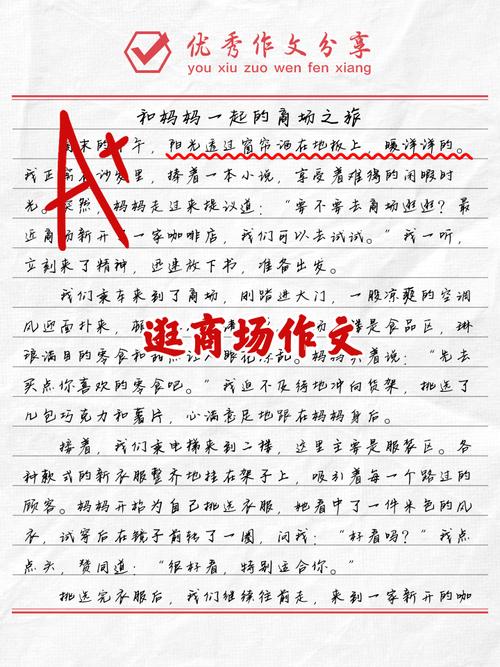 优秀作文分享
you xiu zuo wen fen xiang
和妈妈一起的商场之旅
A+
末的 午，阳光透过窗帘洒在地板上，暖洋洋的。
我正 沙发里，捧着一本小说，享受着难得的闲暇时
光。突然，妈妈走过来提议道：“要不要去商场逛逛？最
近商场新开了一家咖啡店，我们可以去试试。”我一听，
立刻来了精神，迅速放下书，准备出发。
我们乘车来到了商场，刚踏进大门，一股凉爽的空调
风迎面扑来， 是食品区，琳
逛商场作文
琅满目的零食和 眼花 乱。妈妈 着说：“先去
买点你喜欢的零食吧。”我迫不及待地冲向货架，挑选了
几包巧克力和薯片，心满意足地跟在妈妈身后。
接着，我们乘电梯来到二楼，这里主要是服装区。各
种款式的新衣服整齐地挂在架子上，吸引着每一个路过的
顾客。妈妈开始为自己挑选衣服，她看中了一件米色的风
衣，试穿后在镜子前转了一圈，问我：“好看吗？”我点
点头，赞同道：“很好看，特别适合你。”
挑选完衣服后，我们继续往前走，来到一家新开的咖